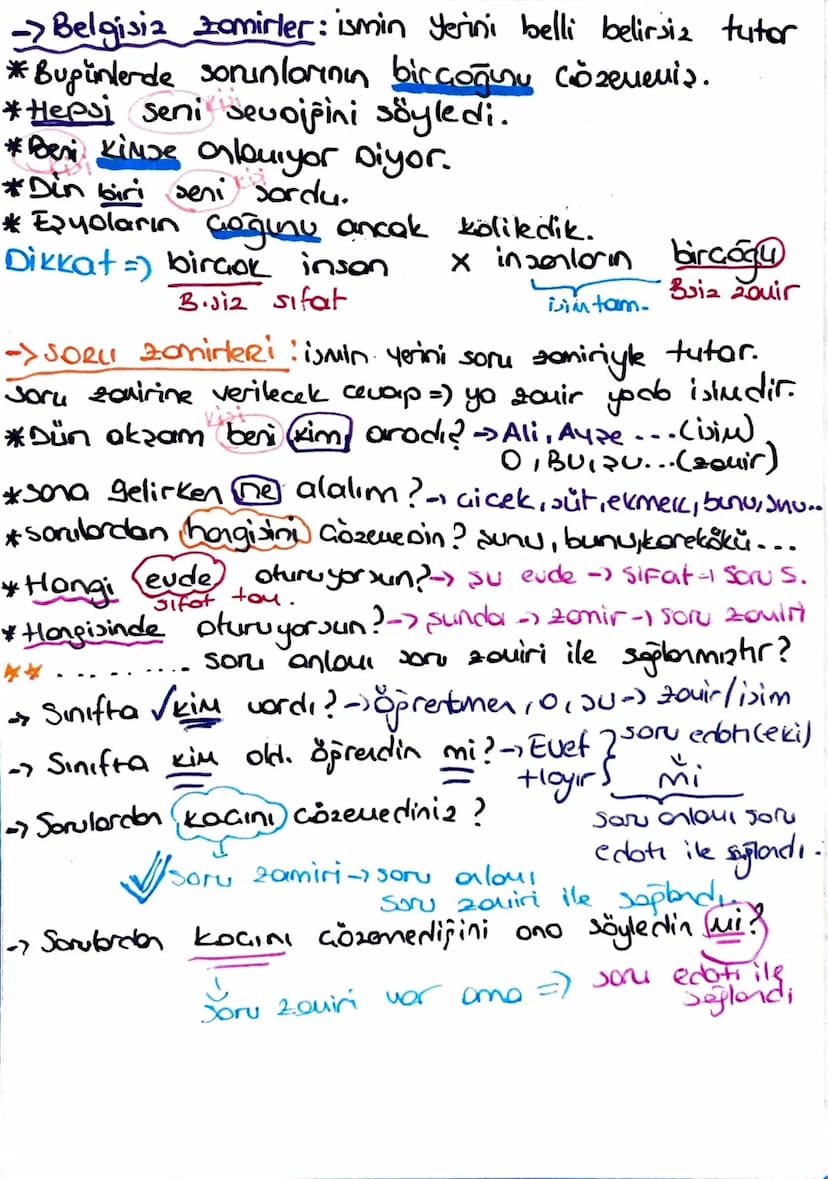 -> Belgisiz zamirler: ismin yerini belli belirsiz tutar
* Bugünlerde sorunlarının birçoğunu çözememiş.
* Hepsi seni kişi sevdiğini söyledi.
* Beni kişi kimse anlamıyor diyor.
* Dün biri seni kişi sordu.
* Eşyaların çoğunu ancak koliledik.
Dikkat => birçok insan x insanların birçoğu
B.siz sıfat isim tam. Bsiz zamir
-> Soru zamirleri: ismin yerini soru zamiriyle tutar.
soru zamirine verilecek cevap => ya zamir yada isimdir.
kişi
* Dün akşam beni kim aradı? -> Ali, Ayşe ... (isim)
O, Bu, şu... (zamir)
* sana gelirken ne alalım? -> çiçek, süt, ekmek, bunu, şunu..
* sorulardan hangisini çözemedin? şunu, bunu, karekökü...
* Hangi evde oturuyorsun? -> şu evde -> sıfat -> soru s.
sıfat tam.
* Hangisinde oturuyorsun? -> şunda -> zamir -> soru zamiri
** .......... soru anlamı soru zamiri ile sağlanmıştır?
-> Sınıfta √kim vardı? -> öğretmen, o, şu -> zamir/isim
-> Sınıfta kim old. öğrendin mi? -> Evet } soru edatı (eki)
Hayır } mi
-> Sorulardan kaçını çözemediniz?
soru anlamı soru
edatı ile sağlandı.
soru zamiri -> soru anlamı
soru zamiri ile sağlandı.
-> Sorulardan kaçını çözemediğini ona söyledin mi?
Soru zamiri var ama => soru edatı ile
sağlandı